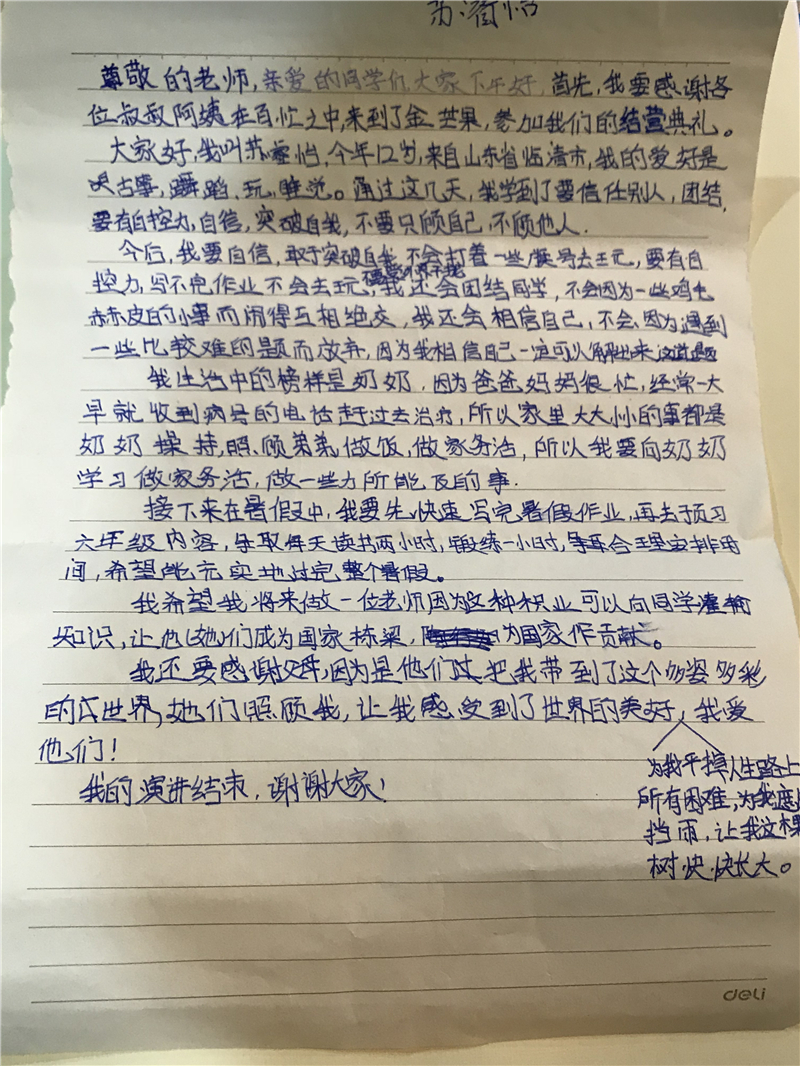 尊敬的老师,亲爱的同学们大家下午好,首先,我要感谢各
位叔叔阿姨在百忙之中,来到了金芒果,参加我们的结营典礼。
大家好,我叫苏睿怡,今年12岁,来自山东省临清市,我的爱好是
古筝,舞蹈、玩,睡觉。通过这几天,我学到了要信任别人,团结,
要有自控力,自信,突破自我,不要只顾自己,不顾他人.
今后,我要自信,敢于突破自我,不会打着一些旗号去玩,要有自
控力,写不完作业不会去玩,我还会团结同学,不会因为一些鸡毛
蒜皮的小事而闹得互相绝交,我还会相信自己,不会因为遇到
一些比较难的题而放弃,因为我相信自己一定可以解出来这道题
我生活中的榜样是奶奶,因为爸爸妈妈很忙,经常一大
早就收到病号的电话赶过去治疗,所以家里大大小小的事都是
奶奶操持,照顾弟弟,做饭,做家务活,所以我要向奶奶
学习做家务活,做一些力所能及的事.
接下来在暑假中,我要先快速写完暑假作业,再去预习
六年级内容,争取每天读书两小时,锻练一小时,争取合理安排时
间,希望能充实地过完整个暑假。
我希望我将来做一位老师因为这种积业可以向同学灌输
知识,让他(她)们成为国家栋梁,为国家作贡献。
我还要感谢父母,因为是他们把我带到了这个多姿多彩
的世界,她们照顾我,让我感受到了世界的美好,我爱
他们!
为我平掉人生路上
所有困难,为我遮
挡雨,让我这棵
树快快长大。
我的演讲结束,谢谢大家!
deli